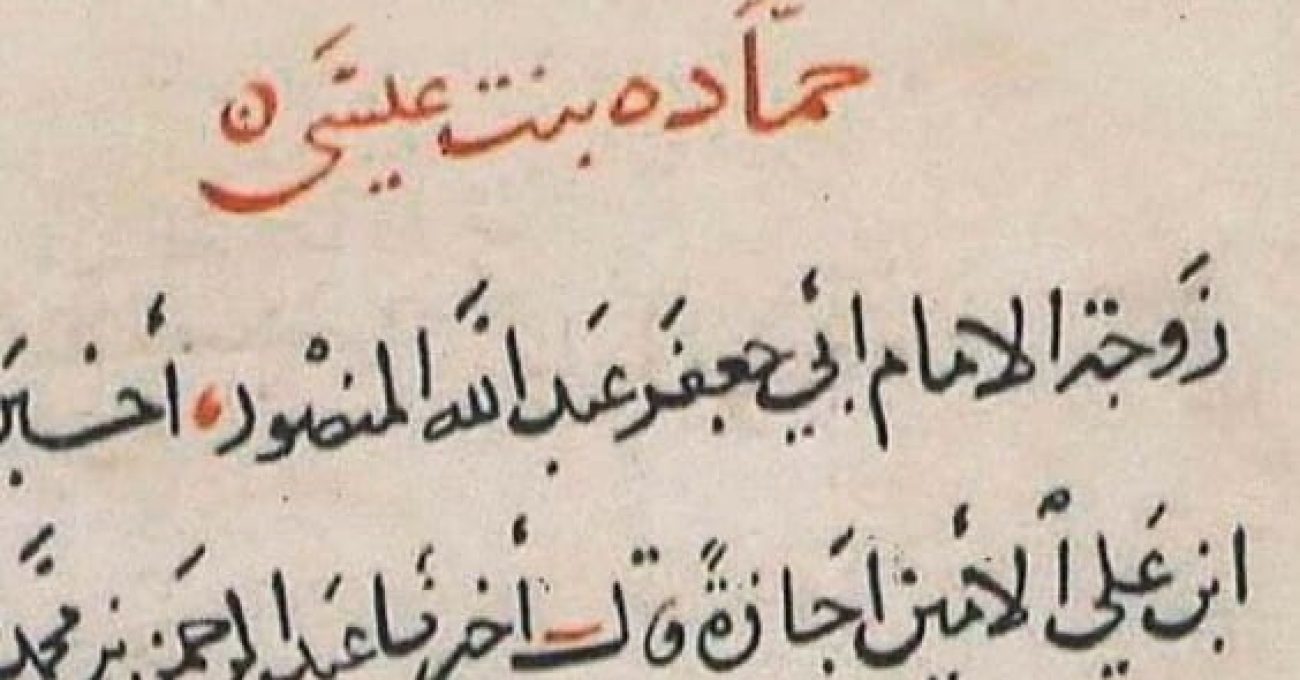 حمّاده بنت عليسَى
زَوجة الامام أبي جعفر عَبد اللَّه المنصْور أخبر
ابن عَلي الأمين اجَازةً وقال أخبرنا عبَد الرحمَن بن محمَّد